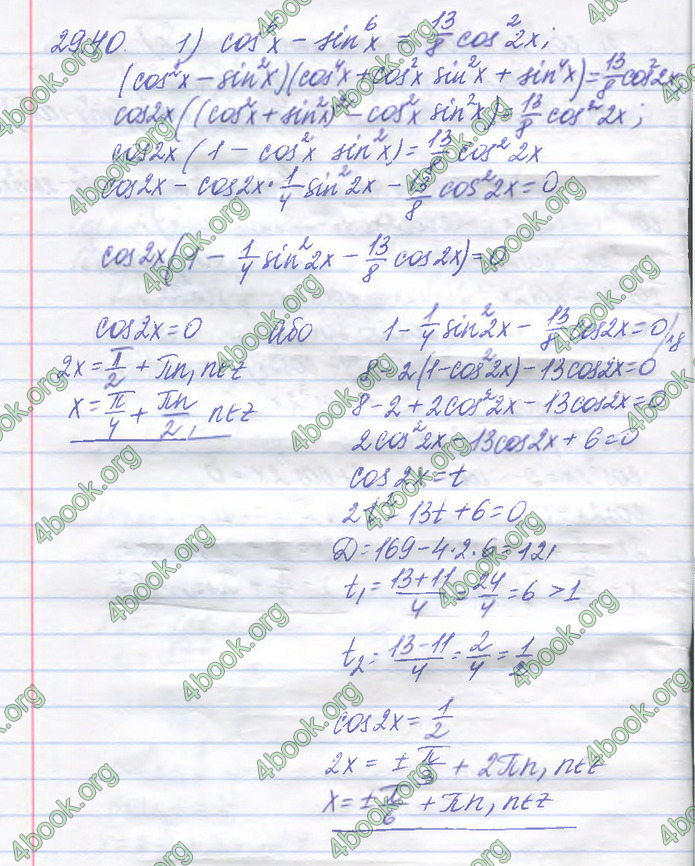 29.40. 1) cos⁶x − sin⁶x = 13/8 cos²2x;
(cos²x − sin²x)(cos⁴x + cos²x sin²x + sin⁴x) = 13/8 cos²2x
cos2x((cos²x + sin²x)² − cos²x sin²x) = 13/8 cos²2x;
cos2x(1 − cos²x sin²x) = 13/8 cos²2x
cos2x − cos2x · 1/4 sin²2x − 13/8 cos²2x = 0
cos2x(1 − 1/4 sin²2x − 13/8 cos2x) = 0
cos2x = 0 або 1 − 1/4 sin²2x − 13/8 cos2x = 0 /·8
2x = π/2 + πn, n∈z
x = π/4 + πn/2, n∈z
8 − 2(1 − cos²2x) − 13cos2x = 0
8 − 2 + 2cos²2x − 13cos2x = 0
2cos²2x − 13cos2x + 6 = 0
cos2x = t
2t² − 13t + 6 = 0
D = 169 − 4·2·6 = 121
t₁ = (13+11)/4 = 24/4 = 6 > 1
t₂ = (13−11)/4 = 2/4 = 1/2
cos2x = 1/2
2x = ± π/3 + 2πn, n∈z
x = ± π/6 + πn, n∈z
4book.org